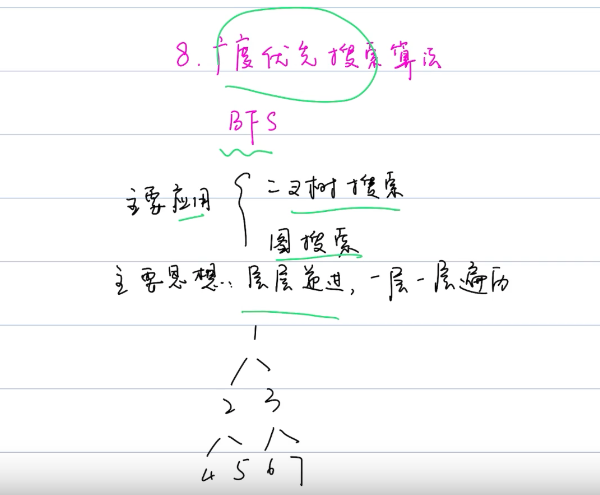 8. 广度优先搜索算法
BFS
主要应用
二叉树搜索
图搜索
主要思想: 层层递进, 一层一层遍历
1
2 3
4 5 6 7